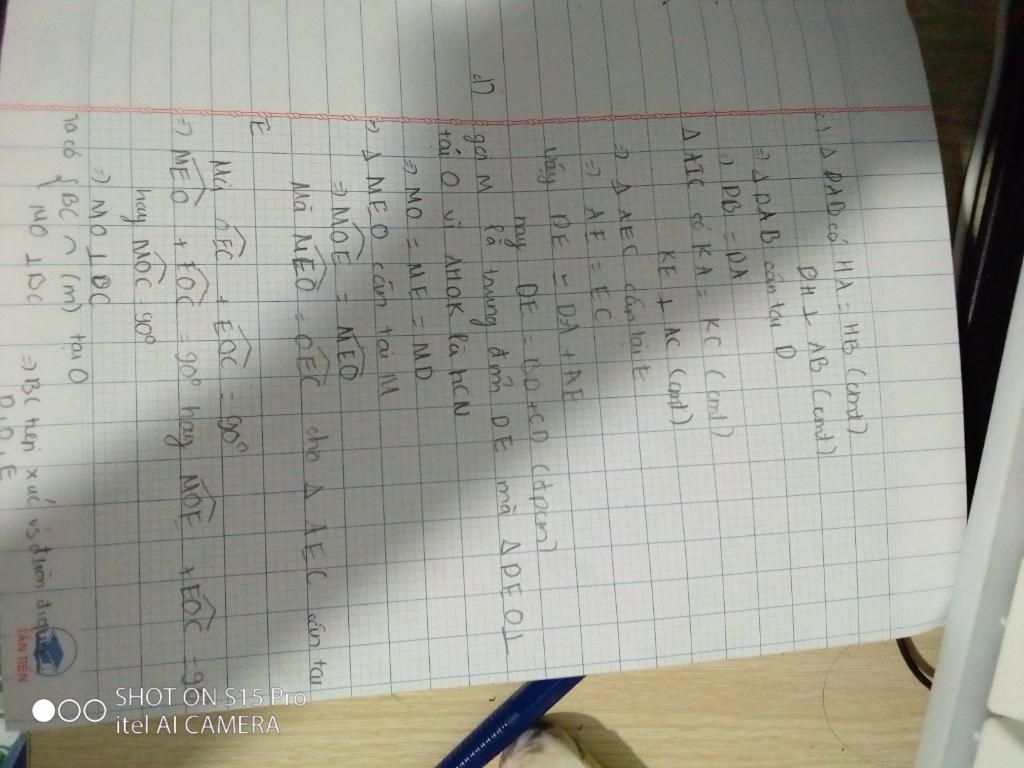 c). Δ DAD có HA = HB (cmt)
DH ⊥ AB (cmt)
=> Δ DAB cân tại D
=> DB = DA
Δ AIC có KA = KC (cmt)
KE ⊥ AC (cmt)
=> Δ AEC cân tại E
=> AE = EC
Vậy DE = DA + AE
hay DE = BD + CD (đpcm)
d)
gọi M là trung điểm DE mà Δ DEO ⊥
tại O vì AHOK là hCN
=> MO = ME = MD
=> Δ MEO cân tại M
=> MOE = MEO
Mà MEO = OEC do Δ AEC cân tại
E
Mà OEC + EOC = 90°
=> MEO + EOC = 90° hay MOE + EOC = 9
hay MOC = 90°
=> MO ⊥ BC
Ta có { BC ∩ (M) tại O
MO ⊥ BC
=> BC tiếp xúc vs đường đi qua
D, O, E
TÂN TIẾN
SHOT ON S15 Pro
itel AI CAMERA